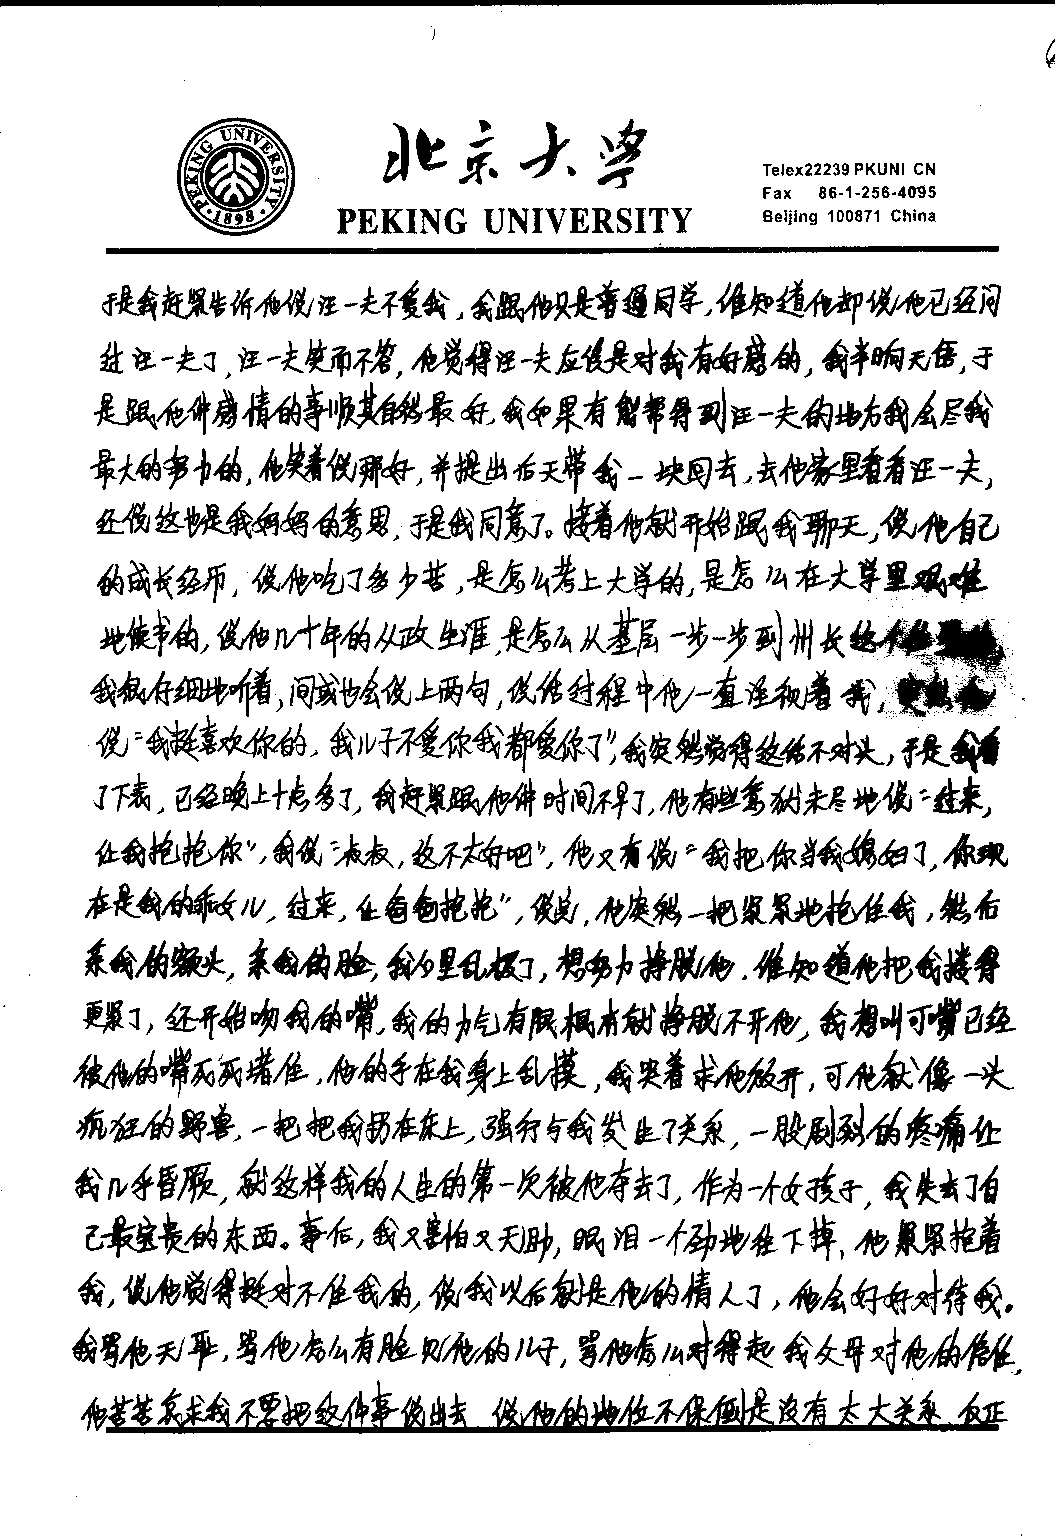 PEKING UNIVERSITY
·1898·
北京大学
PEKING UNIVERSITY
Telex22239 PKUNI CN
Fax 86-1-256-4095
Beijing 100871 China
于是我赶紧告诉他说汪一夫不爱我，我跟他只是普通同学，谁知道他却说他已经问
过汪一夫了，汪一夫笑而不答，他觉得汪一夫应该是对我有好感的，我半晌无语，于
是跟他讲感情的事顺其自然最好，我如果有能帮得到汪一夫的地方我会尽我
最大的努力的，他笑着说那好，并提出后天带我一块回去，去他家里看看汪一夫，
还说这也是我妈妈的意思，于是我同意了。接着他就开始跟我聊天，说他自己
的成长经历，说他吃了多少苦，是怎么考上大学的，是怎么在大学里艰难
地读书的，说他几十年的从政生涯，是怎么从基层一步一步到州长这个
我很仔细地听着，间或也会说上两句，说话过程中他一直注视着我，
说“我挺喜欢你的，我儿子不爱你我都爱你了”，我突然觉得这话不对头，于是我看
了下表，已经晚上十点多了，我赶紧跟他讲时间不早了，他有些意犹未尽地说“过来，
让我抱抱你”，我说“叔叔，这不太好吧”，他又有说“我把你当我媳妇了，你现
在是我的乖女儿，过来，让爸爸抱抱”，说完，他突然一把紧紧地抱住我，然后
亲我的额头，亲我的脸，我心里乱极了，想努力挣脱他．谁知道他把我搂得
更紧了，还开始吻我的嘴，我的力气有限根本就挣脱不开他，我想叫可嘴已经
被他的嘴死死堵住，他的手在我身上乱摸，我哭着求他放开，可他就像一头
疯狂的野兽，一把把我扔在床上，强行与我发生了关系，一股剧烈的疼痛让
我几乎昏厥，就这样我的人生的第一次被他夺去了，作为一个女孩子，我失去了自
己最宝贵的东西。事后，我又害怕又无助，眼泪一个劲地往下掉，他紧紧抱着
我，说他觉得挺对不住我的，说我以后就是他的情人了，他会好好对待我。
我骂他无耻，骂他怎么有脸见他的儿子，骂他怎么对得起我父母对他的信任，
他苦苦哀求我不要把这件事说出去，说他的地位不保倒是没有太大关系，反正